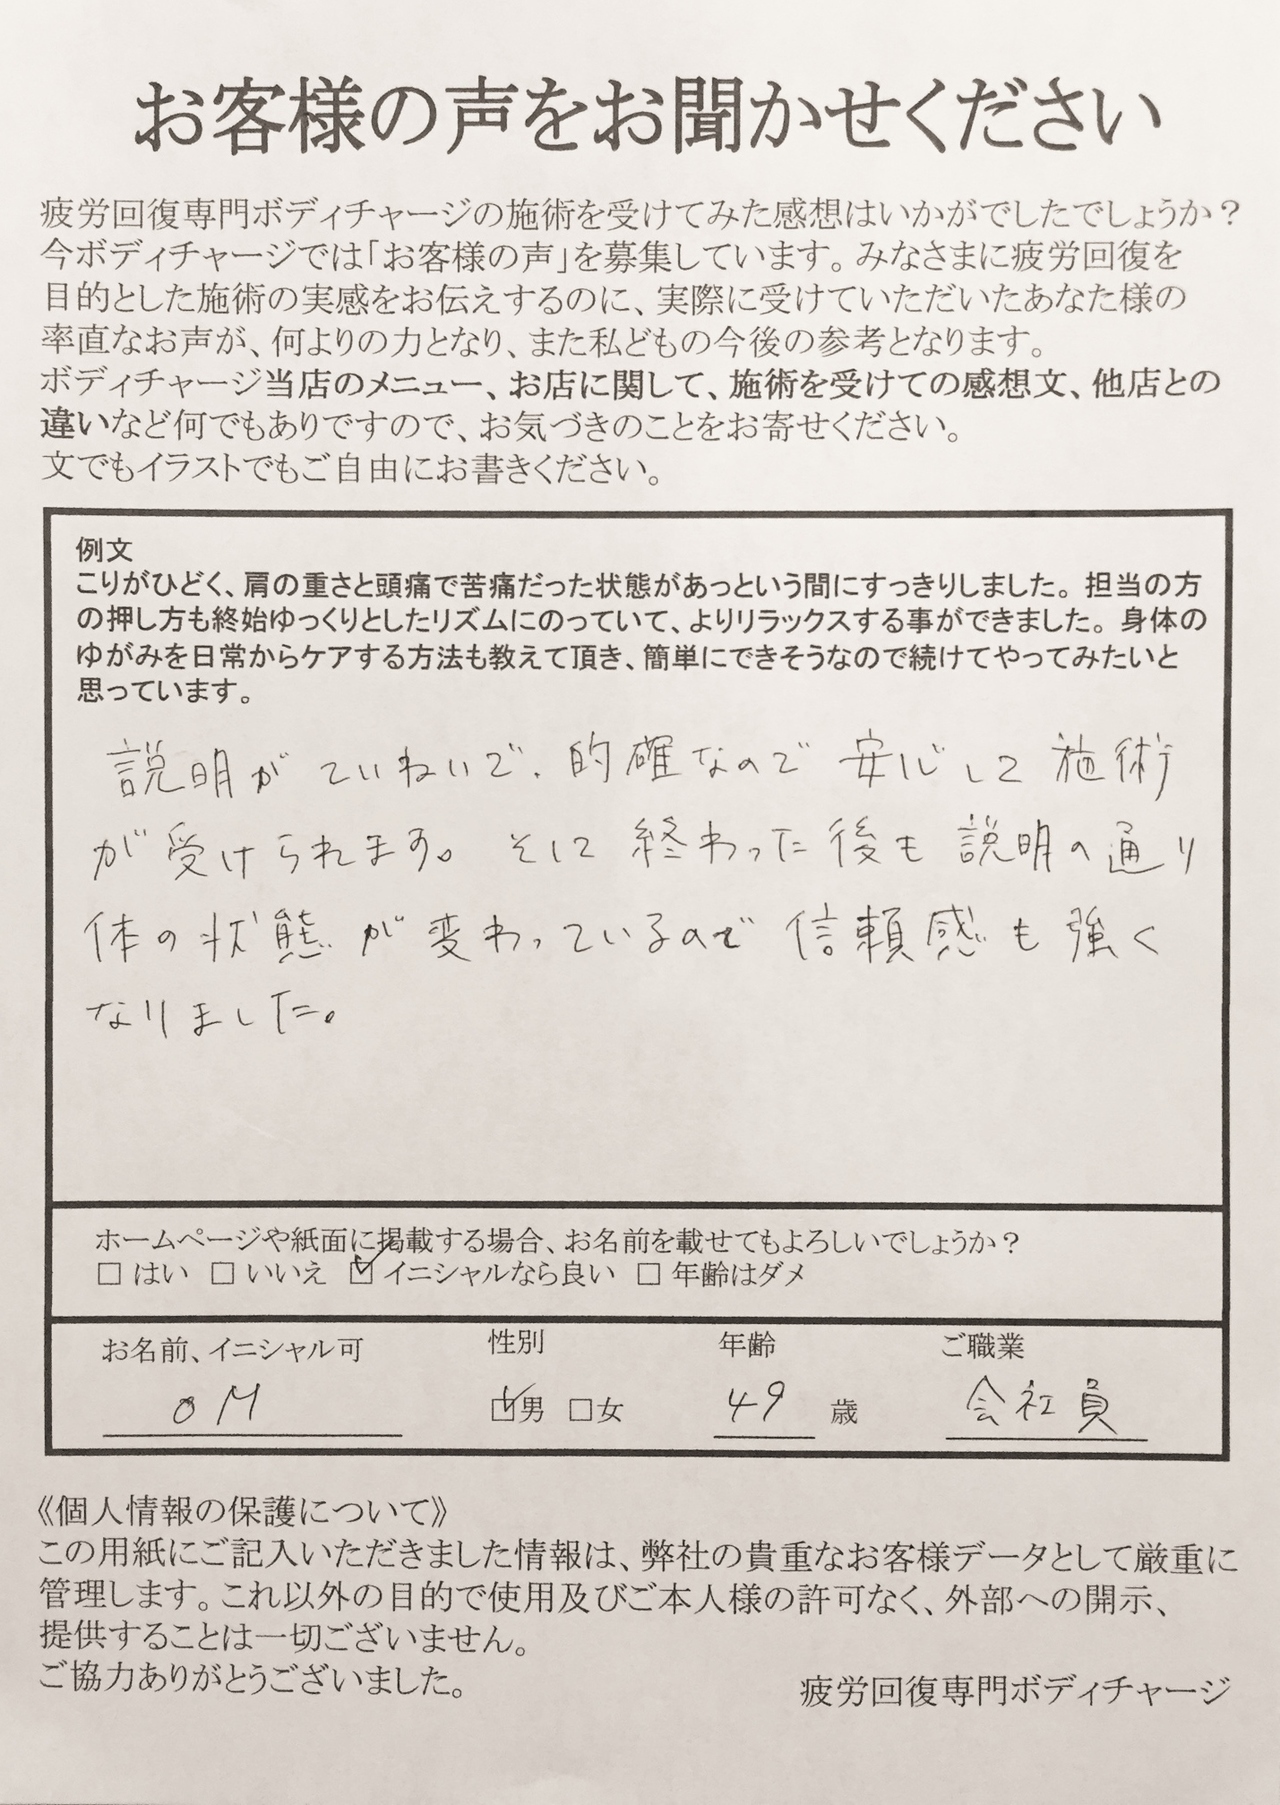 お客様の声をお聞かせください
疲労回復専門ボディチャージの施術を受けてみた感想はいかがでしたでしょうか？
今ボディチャージでは「お客様の声」を募集しています。みなさまに疲労回復を
目的とした施術の実感をお伝えするのに、実際に受けていただいたあなた様の
率直なお声が、何よりの力となり、また私どもの今後の参考となります。
ボディチャージ当店のメニュー、お店に関して、施術を受けての感想文、他店との
違いなど何でもありですので、お気づきのことをお寄せください。
文でもイラストでもご自由にお書きください。
例文
こりがひどく、肩の重さと頭痛で苦痛だった状態があっという間にすっきりしました。担当の方
の押し方も終始ゆっくりとしたリズムにのっていて、よりリラックスする事ができました。身体の
ゆがみを日常からケアする方法も教えて頂き、簡単にできそうなので続けてやってみたいと
思っています。
説明がていねいで、的確なので安心して施術
が受けられます。そして終わった後も説明の通り
体の状態が変わっているので信頼感も強く
なりました。
ホームページや紙面に掲載する場合、お名前を載せてもよろしいでしょうか？
□ はい □ いいえ ☑ イニシャルなら良い □ 年齢はダメ
お名前、イニシャル可 性別 年齢 ご職業
OM ☑男 □女 49 歳 会社員
《個人情報の保護について》
この用紙にご記入いただきました情報は、弊社の貴重なお客様データとして厳重に
管理します。これ以外の目的で使用及びご本人様の許可なく、外部への開示、
提供することは一切ございません。
ご協力ありがとうございました。
疲労回復専門ボディチャージ